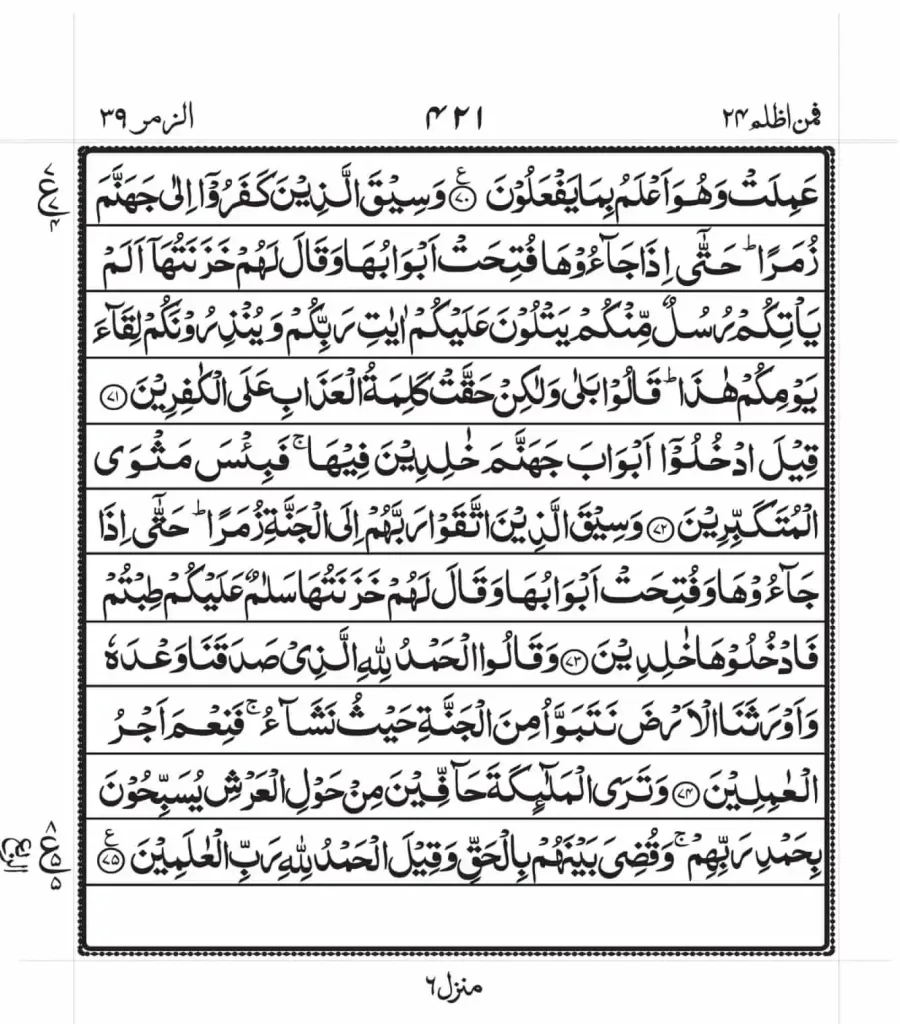 فمن اظلم ٢٤ ٤٢١ الزمر ٣٩
عَمِلَتْ وَهُوَ اَعْلَمُ بِمَا يَفْعَلُوْنَ ﴿٧٠﴾ ع وَسِيْقَ الَّذِيْنَ كَفَرُوْۤا اِلٰى جَهَنَّمَ
زُمَرًا ؕ حَتّٰۤى اِذَا جَآءُوْهَا فُتِحَتْ اَبْوَابُهَا وَقَالَ لَهُمْ خَزَنَتُهَاۤ اَلَمْ
يَاْتِكُمْ رُسُلٌ مِّنْكُمْ يَتْلُوْنَ عَلَيْكُمْ اٰيٰتِ رَبِّكُمْ وَيُنْذِرُوْنَكُمْ لِقَآءَ
يَوْمِكُمْ هٰذَا ؕ قَالُوْا بَلٰى وَلٰكِنْ حَقَّتْ كَلِمَةُ الْعَذَابِ عَلَى الْكٰفِرِيْنَ ﴿٧١﴾
قِيْلَ ادْخُلُوْۤا اَبْوَابَ جَهَنَّمَ خٰلِدِيْنَ فِيْهَا ۚ فَبِئْسَ مَثْوَى
الْمُتَكَبِّرِيْنَ ﴿٧٢﴾ وَسِيْقَ الَّذِيْنَ اتَّقَوْا رَبَّهُمْ اِلَى الْجَنَّةِ زُمَرًا ؕ حَتّٰۤى اِذَا
جَآءُوْهَا وَفُتِحَتْ اَبْوَابُهَا وَقَالَ لَهُمْ خَزَنَتُهَا سَلٰمٌ عَلَيْكُمْ طِبْتُمْ
فَادْخُلُوْهَا خٰلِدِيْنَ ﴿٧٣﴾ وَقَالُوا الْحَمْدُ لِلّٰهِ الَّذِيْ صَدَقَنَا وَعْدَهٗ
وَاَوْرَثَنَا الْاَرْضَ نَتَبَوَّاُ مِنَ الْجَنَّةِ حَيْثُ نَشَآءُ ۚ فَنِعْمَ اَجْرُ
الْعٰمِلِيْنَ ﴿٧٤﴾ وَتَرَى الْمَلٰٓئِكَةَ حَآفِّيْنَ مِنْ حَوْلِ الْعَرْشِ يُسَبِّحُوْنَ
بِحَمْدِ رَبِّهِمْ ۚ وَقُضِيَ بَيْنَهُمْ بِالْحَقِّ وَقِيْلَ الْحَمْدُ لِلّٰهِ رَبِّ الْعٰلَمِيْنَ ﴿٧٥﴾ ع
منزل ٦